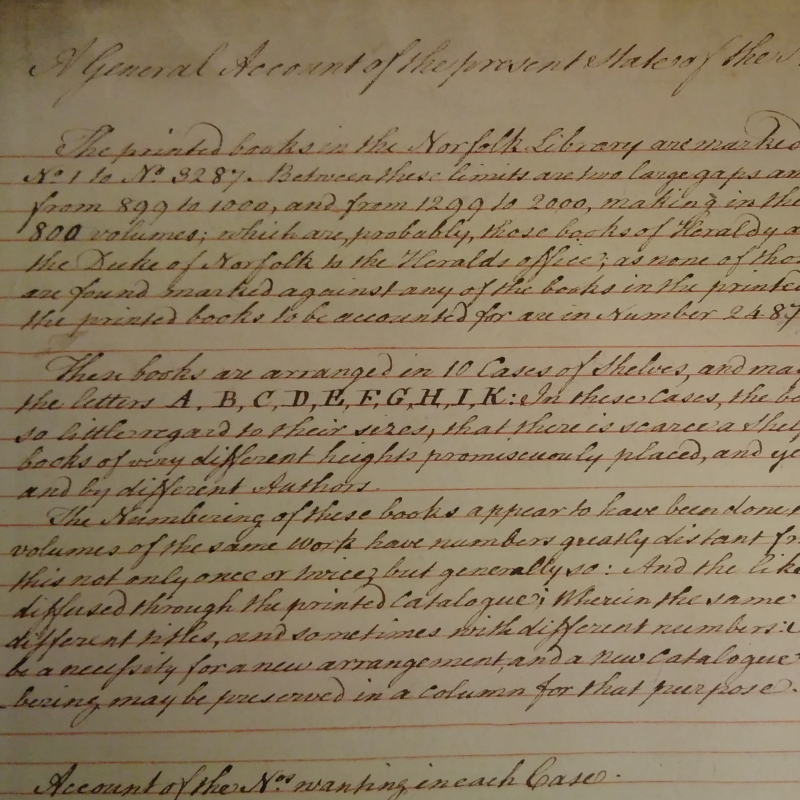 A General Account of the present State of the
The printed books in the Norfolk Library are marked
No. 1 to No. 3287. Between these limits are two large gaps an
from 899 to 1000, and from 1299 to 2000, making in the
800 volumes; which are, probably, those books of Heraldy
the Duke of Norfolk to the Heralds office; as none of tho
are found marked against any of the books in the printed
the printed books to be accounted for are in Number 2487
These books are arranged in 10 Cases of Shelves, and ma
the letters A, B, C, D, E, F, G, H, I, K: In these Cases, the bo
so little regard to their sizes, that there is scarce a Shel
books of very different heights promiscuously placed, and ye
and by different Authors.
The Numbering of these books appear to have been done
volumes of the same work have numbers greatly distant fr
this not only once or twice, but generally so: And the like
diffused through the printed Catalogue; Wherein the same
different titles, and sometimes with different numbers:
be a necessity for a new arrangement, and a new Catalogue
bering may be preserved in a column for that purpose.
Account of the Nos. wanting in each Case.